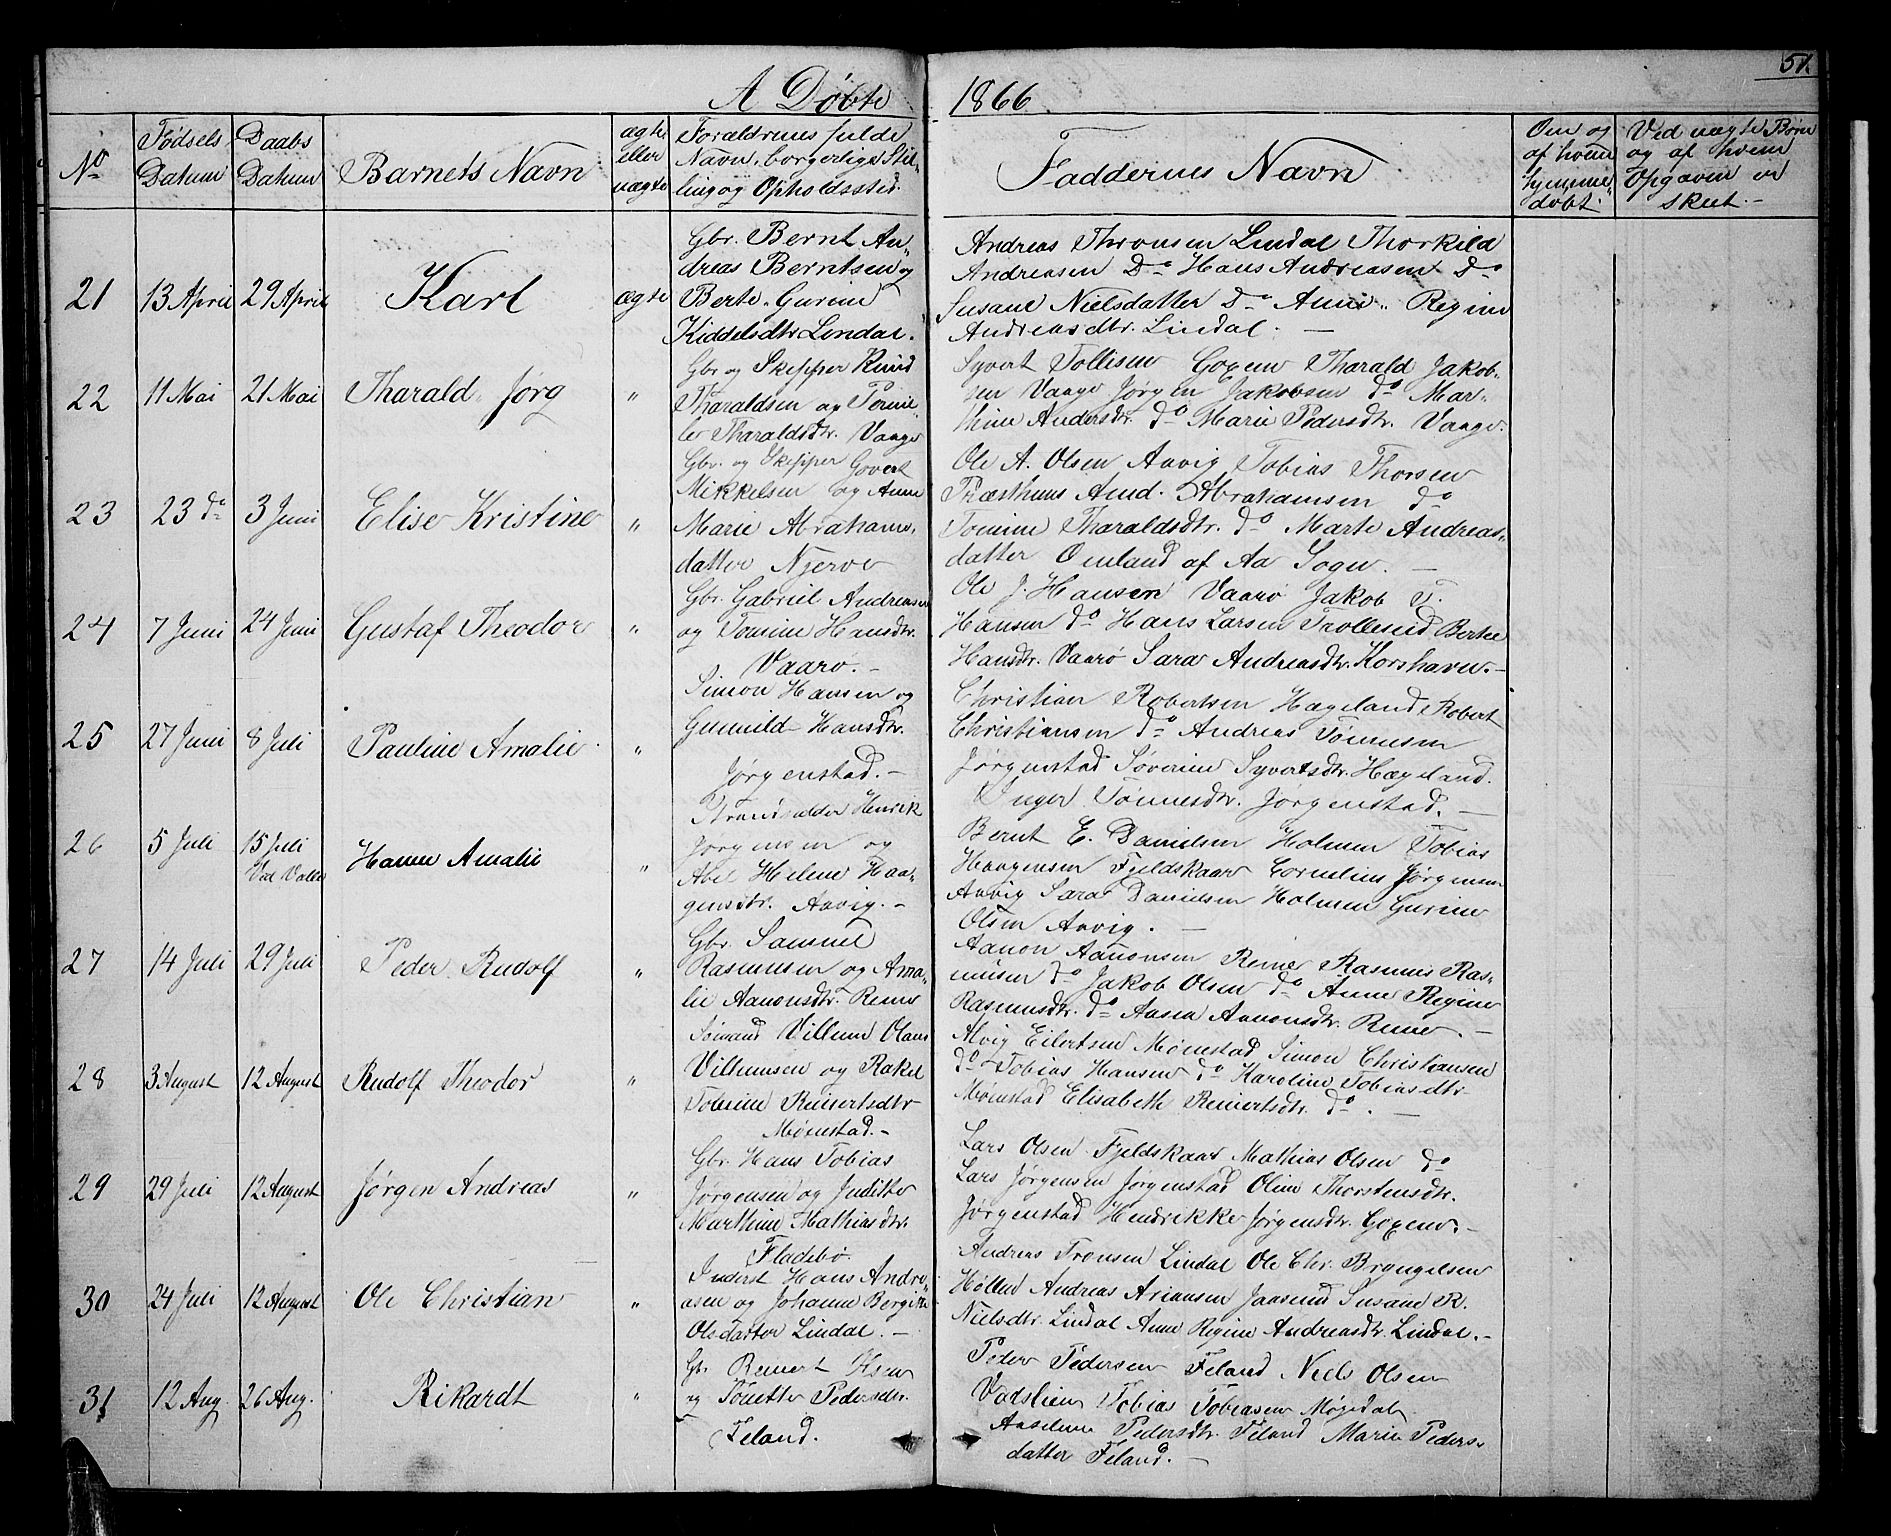 51.
A Døbte 1866.
No
Fødsels Datum
Daabs Datum
Barnets Navn
ægte eller uægte
Forældrenes fulde Navn, borgerlige Stilling og Opholdssted.
Faddernes Navn
Om og af hvem hjemmedøbt.
Ved uægte Børn og af hvem Opgaven er skeet.
21 13 April 29 April Karl ægte
Gbr. Bernt An-
dreas Berntsen og
Berte Gurine
Kiddelsdtr. Lindal.
Andreas Thronsen Lindal Thorkild
Andreasen Do Hans Andreasen Do
Susane Nielsdatter Do Anne Regine
Andreasdtr. Lindal. —
22 11 Mai 21 Mai Tharald Jørg "
Gbr og Skipper Knud
Tharaldsen og Tomi-
le Tharaldsdtr. Vaage
Syvert Tollisen Goxem Tharald Jakob-
sen Vaage Jørgen Jakobsen do Mar-
thine Andersdtr. do Marie Pedersdtr. Vaage.
23 23 do 3 Juni Elise Kristine "
Gbr. og Skipper Govert
Mikkelsen og Anne
Marie Abrahams-
datter Njerve
Ole A. Olsen Aavig Tobias Thorsen
Præsthuus And. Abrahamsen do
Tomine Tharaldsdtr. do Marte Andreas-
datter Omland af Aa Sogn. —
24 7 Juni 24 Juni Gustaf Theodor "
Gbr. Gabriel Andreasen
og Tomine Hansdtr.
Vaarø. —
Ole J. Hansen Vaarø Jakob T.
Hansen do Hans Larsen Trollesud Berthe
Hansdtr. Vaarø Sara Andreasdtr. Korshavn. —
25 27 Juni 8 Juli Pauline Amalie "
Simon Hansen og
Gunnild Hansdtr.
Jørgenstad. —
Christian Robertsen Hægeland Robert
Christiansen do Andreas Tønnesen
Jørgenstad Søverine Syvertsdtr. Hægeland.
Inger Tønnesdtr. Jørgenstad. —
26 5 Juli 15 Juli Ved Valle Hanne Amalie "
Strandsidder Henrik
Jørgensen og
Abel Helene Haa-
gensdtr. Aavig. —
Bernt E. Danielsen Holmen Tobias
Haagensen Fjeldskaar Cornelius Jørgensen
Aavig Sara Danielsen Holmen Gurine
Olsen Aavig. —
27 14 Juli 29 Juli Peder Rudolf "
Gbr. Samuel
Rasmusen og Ama-
lie Aanonsdtr. Reme
Aanon Aanonsen Reme Rasmus Ras-
musen do Jakob Olsen do Anne Regine
Rasmusdtr. do Aasea Aanonsdtr. Reme. —
28 3 August 12 August Rudolf Theodor "
Sømand Villum Olaus
Villumsen og Rakel
Tobine Reinertsdtr
Mønestad. —
Alvig Eilertsen Mønestad Simon Christiansen
do Tobias Hansen do Karoline Tobiasdtr.
Mønestad Elisabeth Reinertsdtr. do. —
29 29 Juli 12 August Jørgen Andreas "
Gbr. Hans Tobias
Jørgensen og Judithe
Marthine Mathiasdtr.
Fladebø.
Lars Olsen Fjeldskaar Mathias Olsen do
Lars Jørgensen Jørgenstad Oline Thorstensdtr.
Jørgenstad Hendrikke Jørgensdtr. Goxem. —
30 24 Juli 12 August Ole Christian "
Inderst Hans Andre-
asen og Johanne Bergitte
Olsdatter Lindal. —
Andreas Tronsen Lindal Ole Chr. Bryngelsen
Høllen Andreas Ariansen Jaasund Susane R.
Nielsdtr. Lindal Anne Regine Andreasdtr. Lindal. —
31 12 Aug. 26 Aug. Rikardt "
Gb. Reinert Olsen
og Tonette Pedersdtr.
Feland.
Peder Pedersen Feland Niels Olsen
Vadslien Tobias Tobiasen Møgedal
Aaselene Pedersdtr. Feland Marie Peders-
datter Feland. —